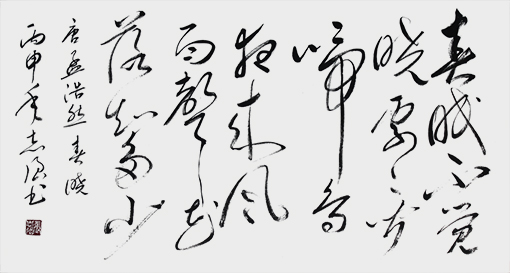 春眠不觉
晓处々闻
啼鸟
夜来风
雨声花
落知多少
唐孟浩然春晓
丙申年志强书